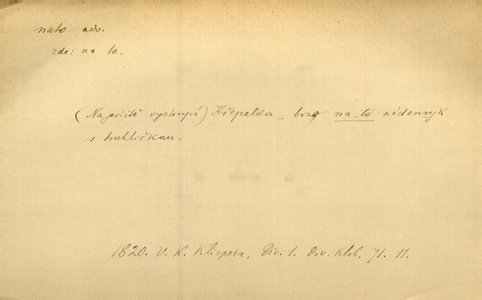 nato adv.
zde: na to.
(Na jeviště vystoupí) Křepelka – brzy na-to nádenník
s truhličkau.
1820. V. K. Klicpera, Div. 1. Div. klob. 71. 11.